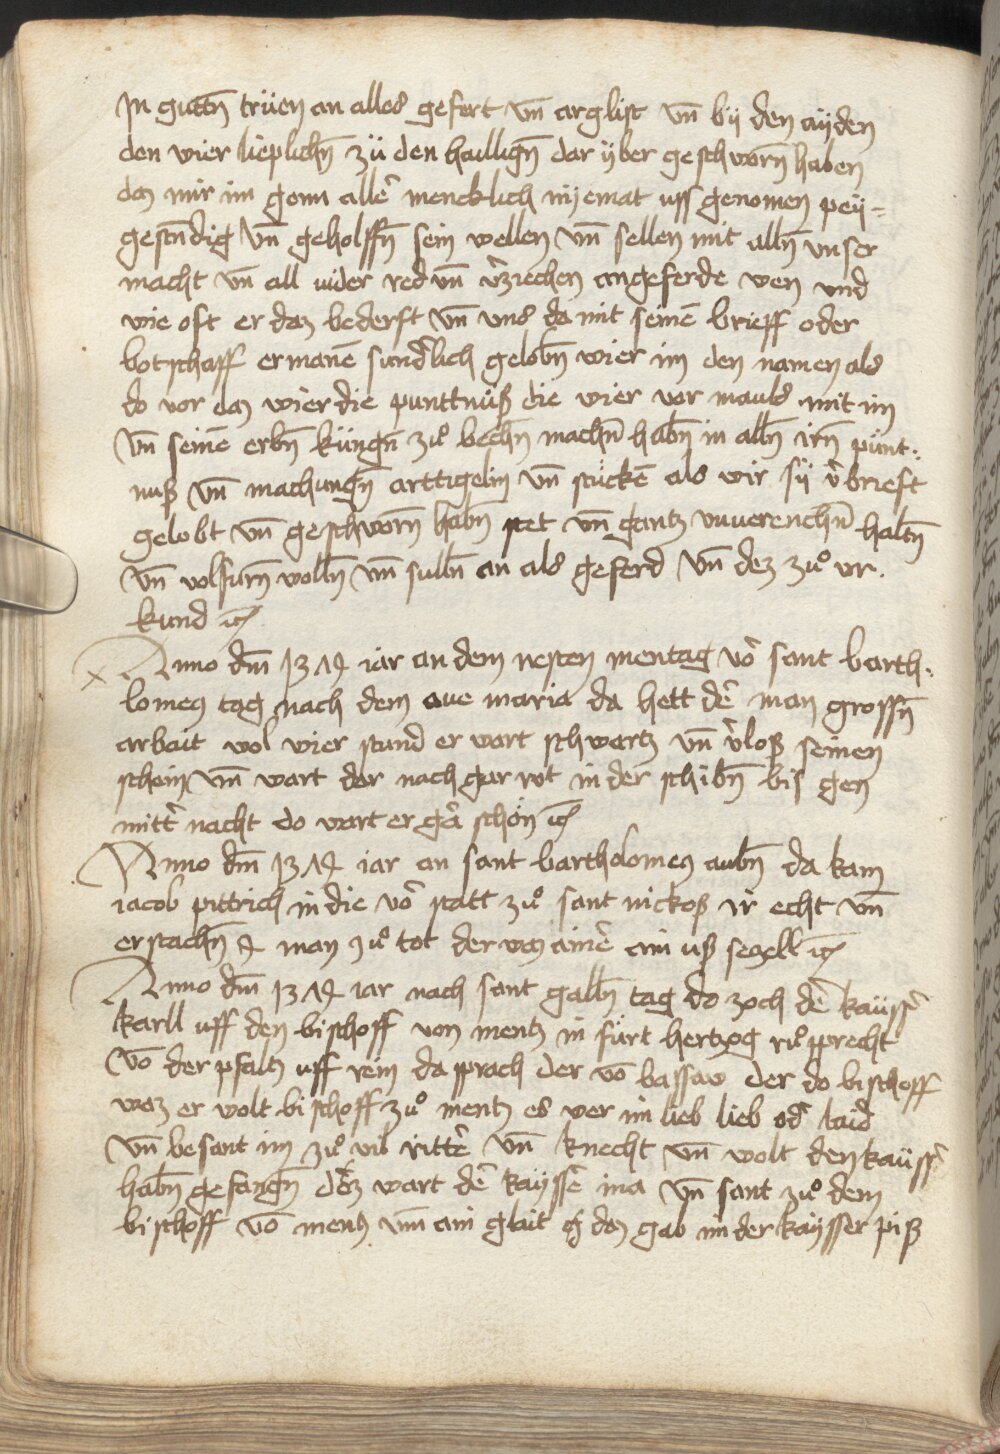 In guttn̄ trüen an alles gefert vn̄ arglist vn̄ bÿ den aÿden
den wier lieplichn̄ zü den haillign̄ dar ÿber geschworn̄ haben
daz mir im genn alle᷑ mencklich nÿemat uss genomen peÿ=
gestn̄dig vn̄ geholffn̄ sein wellen vn̄ sellen mit alln̄ vnser
macht vn̄ all wider red vn̄ v᷑ziechen angeferde wen vnd
wie oft er daz bederft vn̄ vns da mit seinē brieff oder
botschaff ermanē sund᷑lich gelobn̄ wier im den namen als
do vor daz wier die punttnuß die wier vor mauls mit im
vn̄ seinē erbn̄ küngn̄ zuͦ bechn̄ machn̄ habn̄ in alln̄ irn̄ pünt:
nuß vn̄ machungn̄ arttigelin vn̄ stückē als wir sÿ v᷑brieft
gelobt vn̄ geschworn̄ habn̄ stet vn̄ gantz vnuerenchn̄ haltn̄
vn̄ volfurn̄ wolln̄ vn̄ sulln̄ an als geferd vn̄ dez zuͦ vr.
kund ꝛc
Anno dm̄ 1374 iar an dem nesten mentag vo᷑ sant barth.
lomeꝰ tag nach dem aue maria da hett de᷑ man grossn̄
arbait wol vier stund er wart schwartz vn̄ v᷑loß seinen
schein vn̄ wart dar nach gar rot in der schibn̄ bis gen
mitt᷑ nacht do wart er ga᷑ schön ꝛc
Anno dm̄ 1374 iar an sant bartholomeꝰ aubn̄ da kam
iacob pittrich in die vo᷑ statt zuͦ sant nickoß ir echt vn̄
erstachn̄ 4 man zuͦ tot der waz ainē᷑ ain uß segell ꝛc
Anno dm̄ 1374 iar nach sant galln̄ tag do zoch de᷑ kaÿss᷑
karll uff den bischoff von mentz in fürt hertzog ruͦpprecht
vō der pfaltz uff rein da sprach der vō bassaw der do bischoff
waz er wolt bischoff zuͦ mentz es wer im lieb lieb od᷑ laid
vn̄ besant im zuͦ vil ritte᷑ vn̄ knecht vn̄ wolt den kaÿss᷑
habn̄ gefangn̄ dez wart de᷑ kaÿsse᷑ ina vn̄ sant zuͦ dem
bischoff vō mentz vm̄ ain glait daz gab im der kaÿsser piß